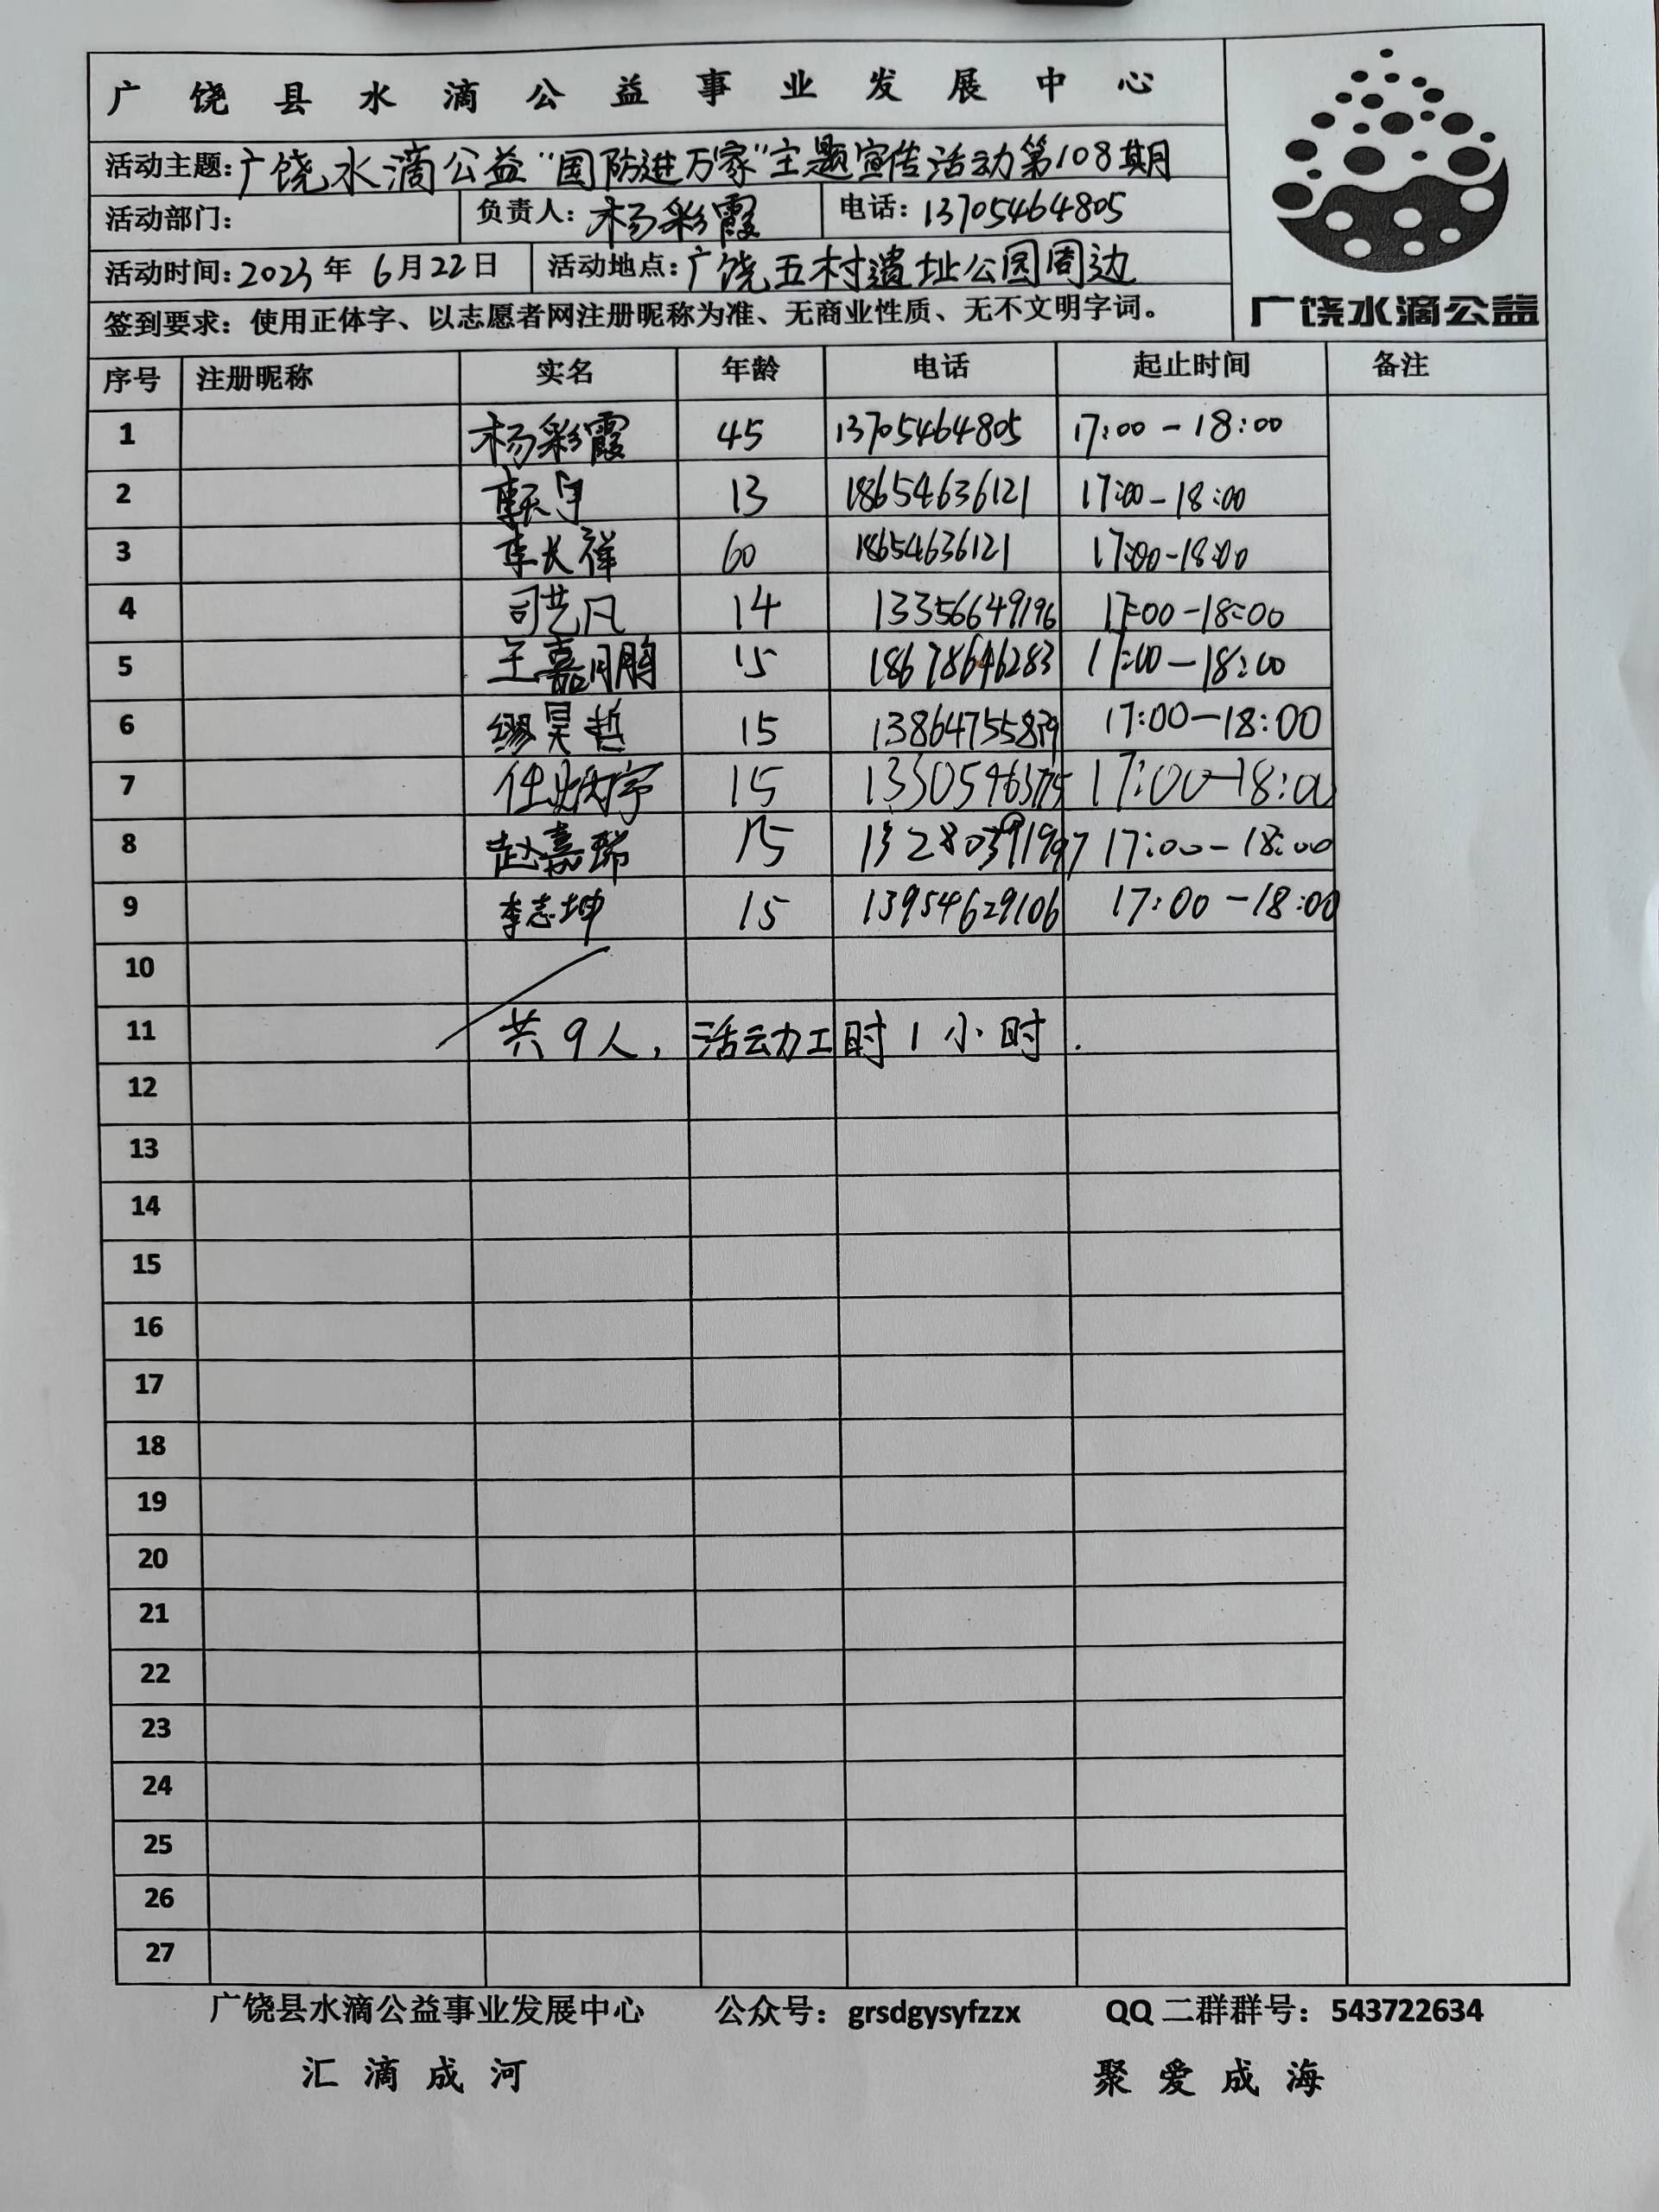 广饶县水滴公益事业发展中心
活动主题:广饶水滴公益“国防进万家”主题宣传活动第108期
活动部门: 负责人:杨彩霞 电话:13705464805
活动时间:2023年6月22日 活动地点:广饶五村遗址公园周边
签到要求:使用正体字、以志愿者网注册昵称为准、无商业性质、无不文明字词。
广饶水滴公益
序号 注册昵称 实名 年龄 电话 起止时间 备注
1 杨彩霞 45 13705464805 17:00-18:00
2 13 18654636121 17:00-18:00
3 李长祥 60 18654636121 17:00-18:00
4 司艺凡 14 13356649196 17:00-18:00
5 王嘉鹏 15 18678646283 17:00-18:00
6 缪昊哲 15 17:00-18:00
7 15 17:00-18:00
8 赵嘉瑞 15 17:00-18:00
9 李志坤 15 13954629106 17:00-18:00
10
11 共9人,活动工时1小时.
12
13
14
15
16
17
18
19
20
21
22
23
24
25
26
27
广饶县水滴公益事业发展中心 公众号:grsdgysyfzzx QQ二群群号:543722634
汇滴成河 聚爱成海